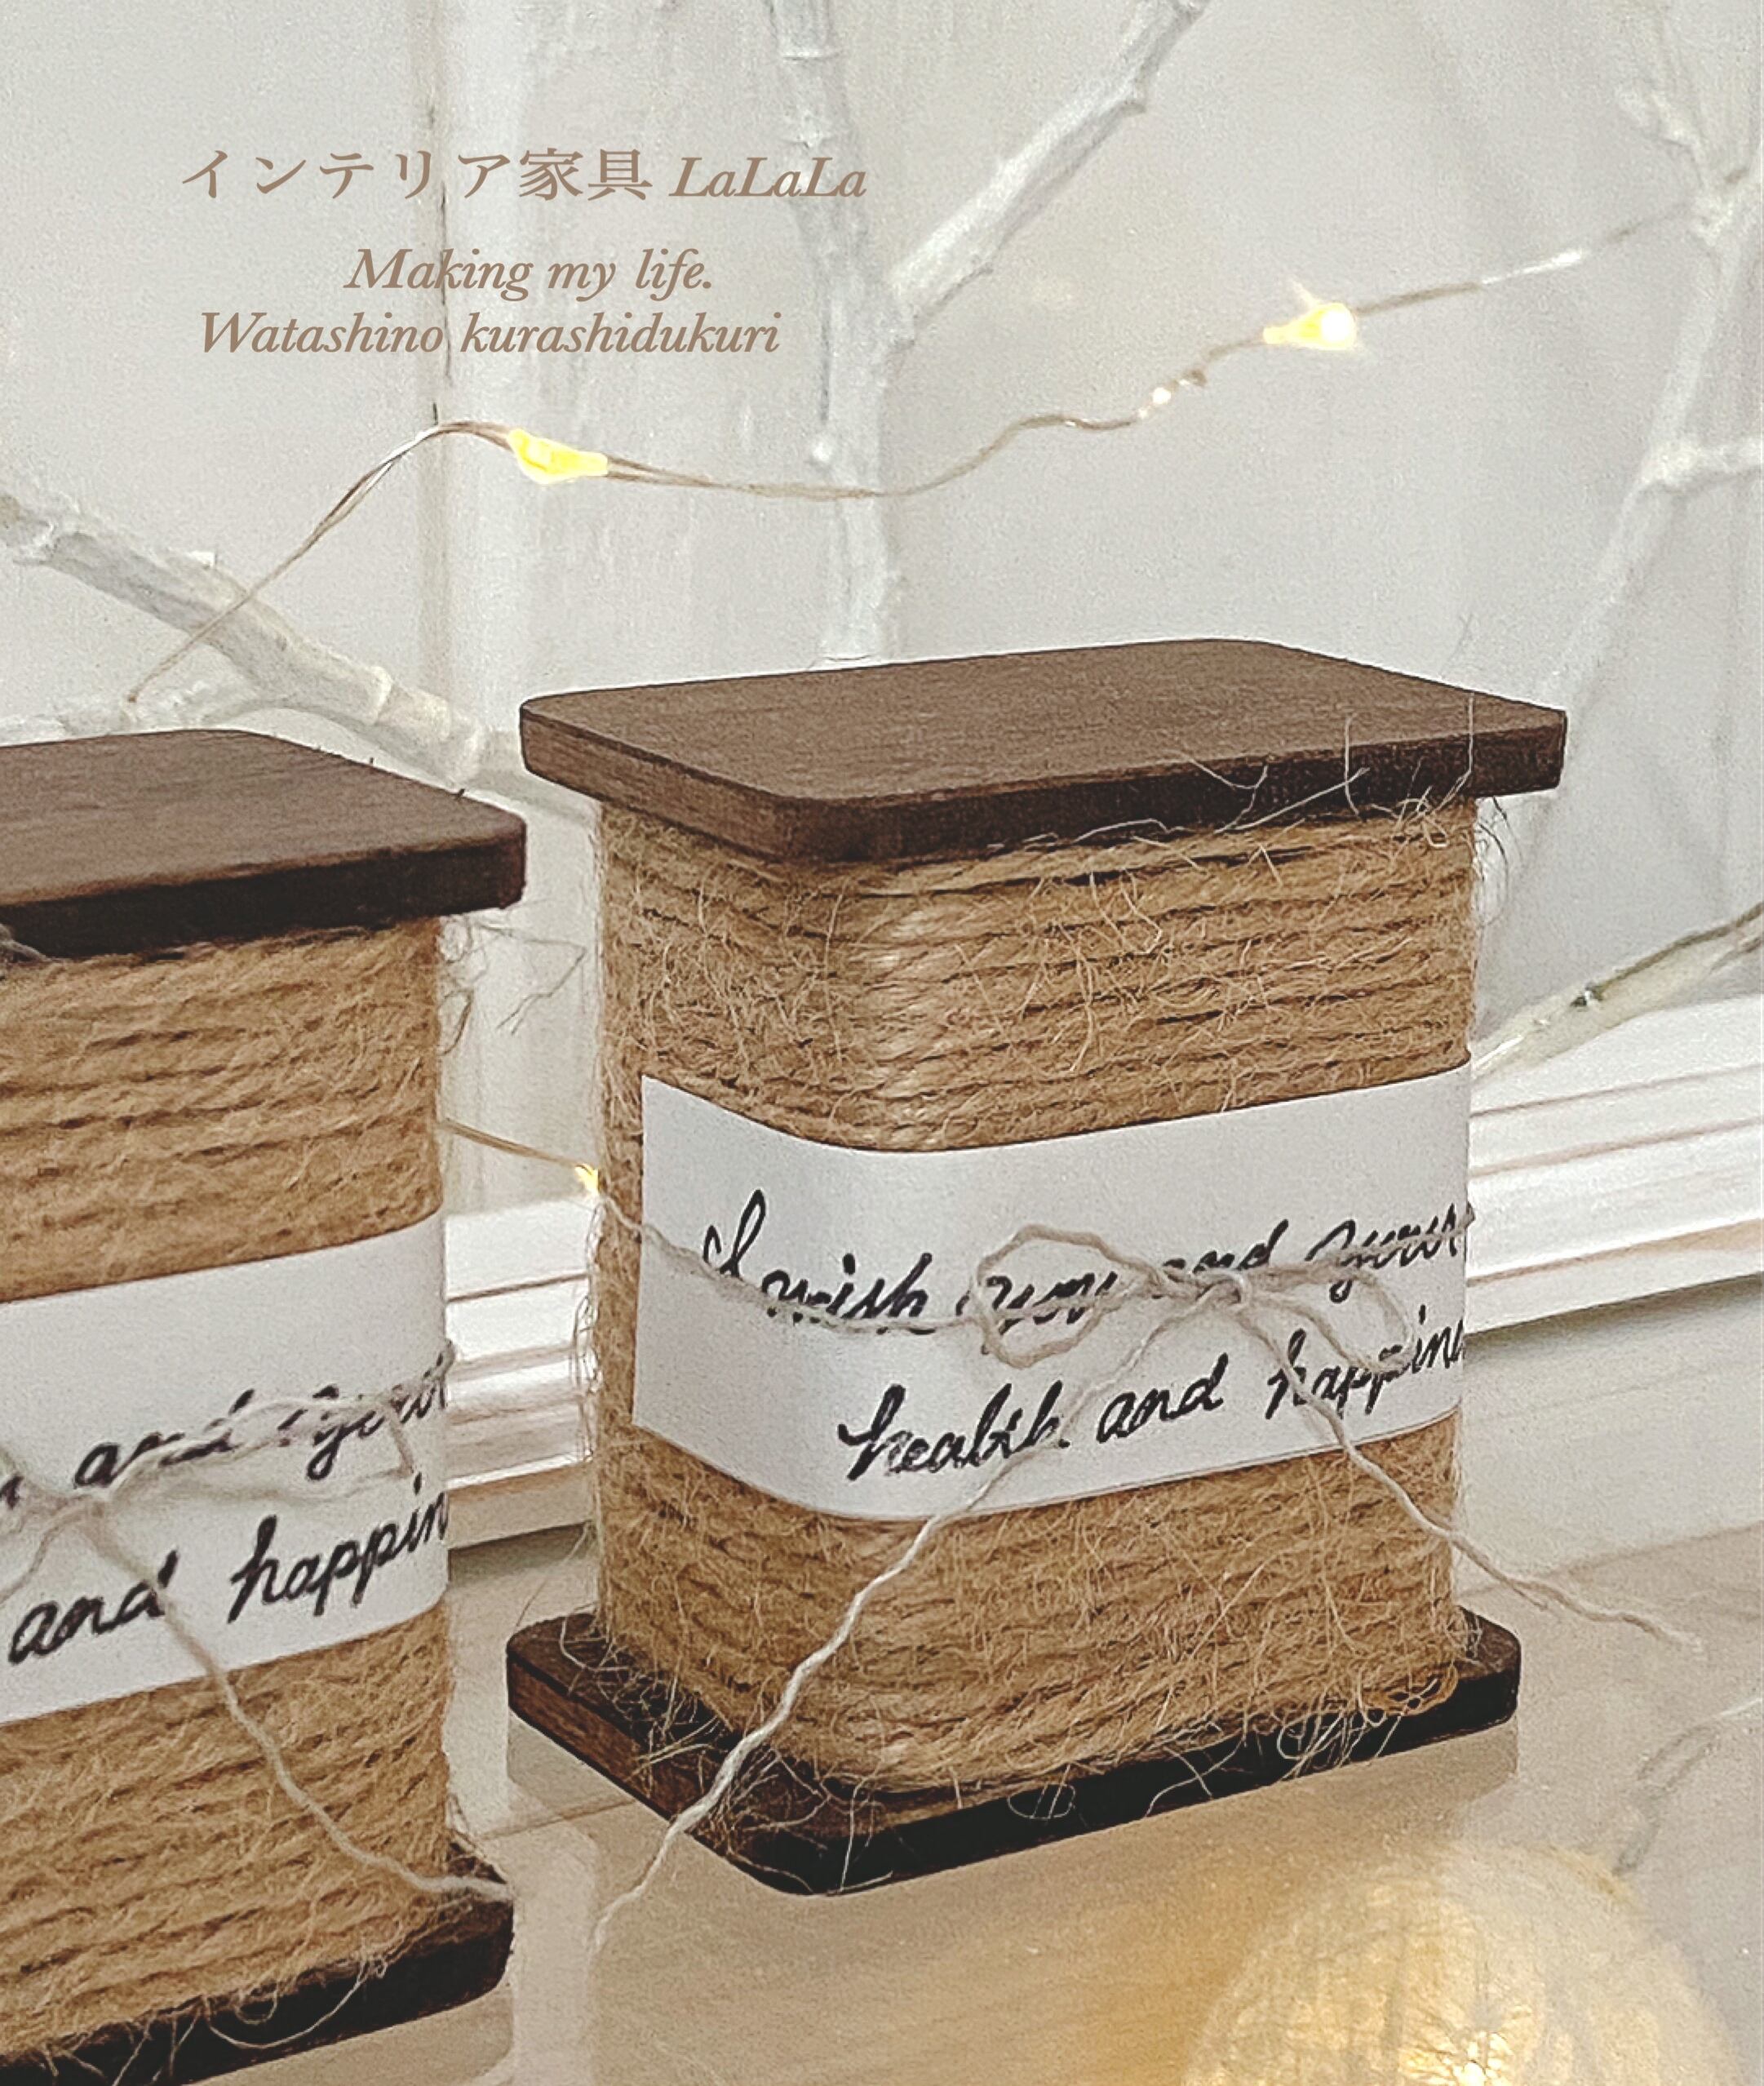 インテリア家具 LaLaLa
Making my life.
Watashino kurashidukuri
I wish you and your
health and happin
and your
and happin